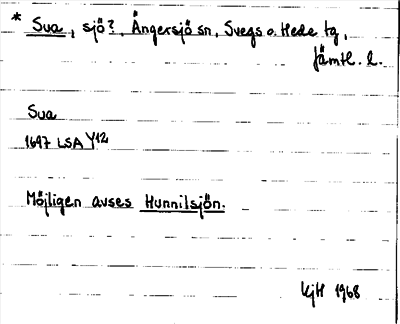 * Sua, sjö?, Ängersjö sn, Svegs o. Hede tg,
Jämtl. l.
Sua
1697 LSA Y12
Möjligen avses Hunnilsjön.
KjH 1968